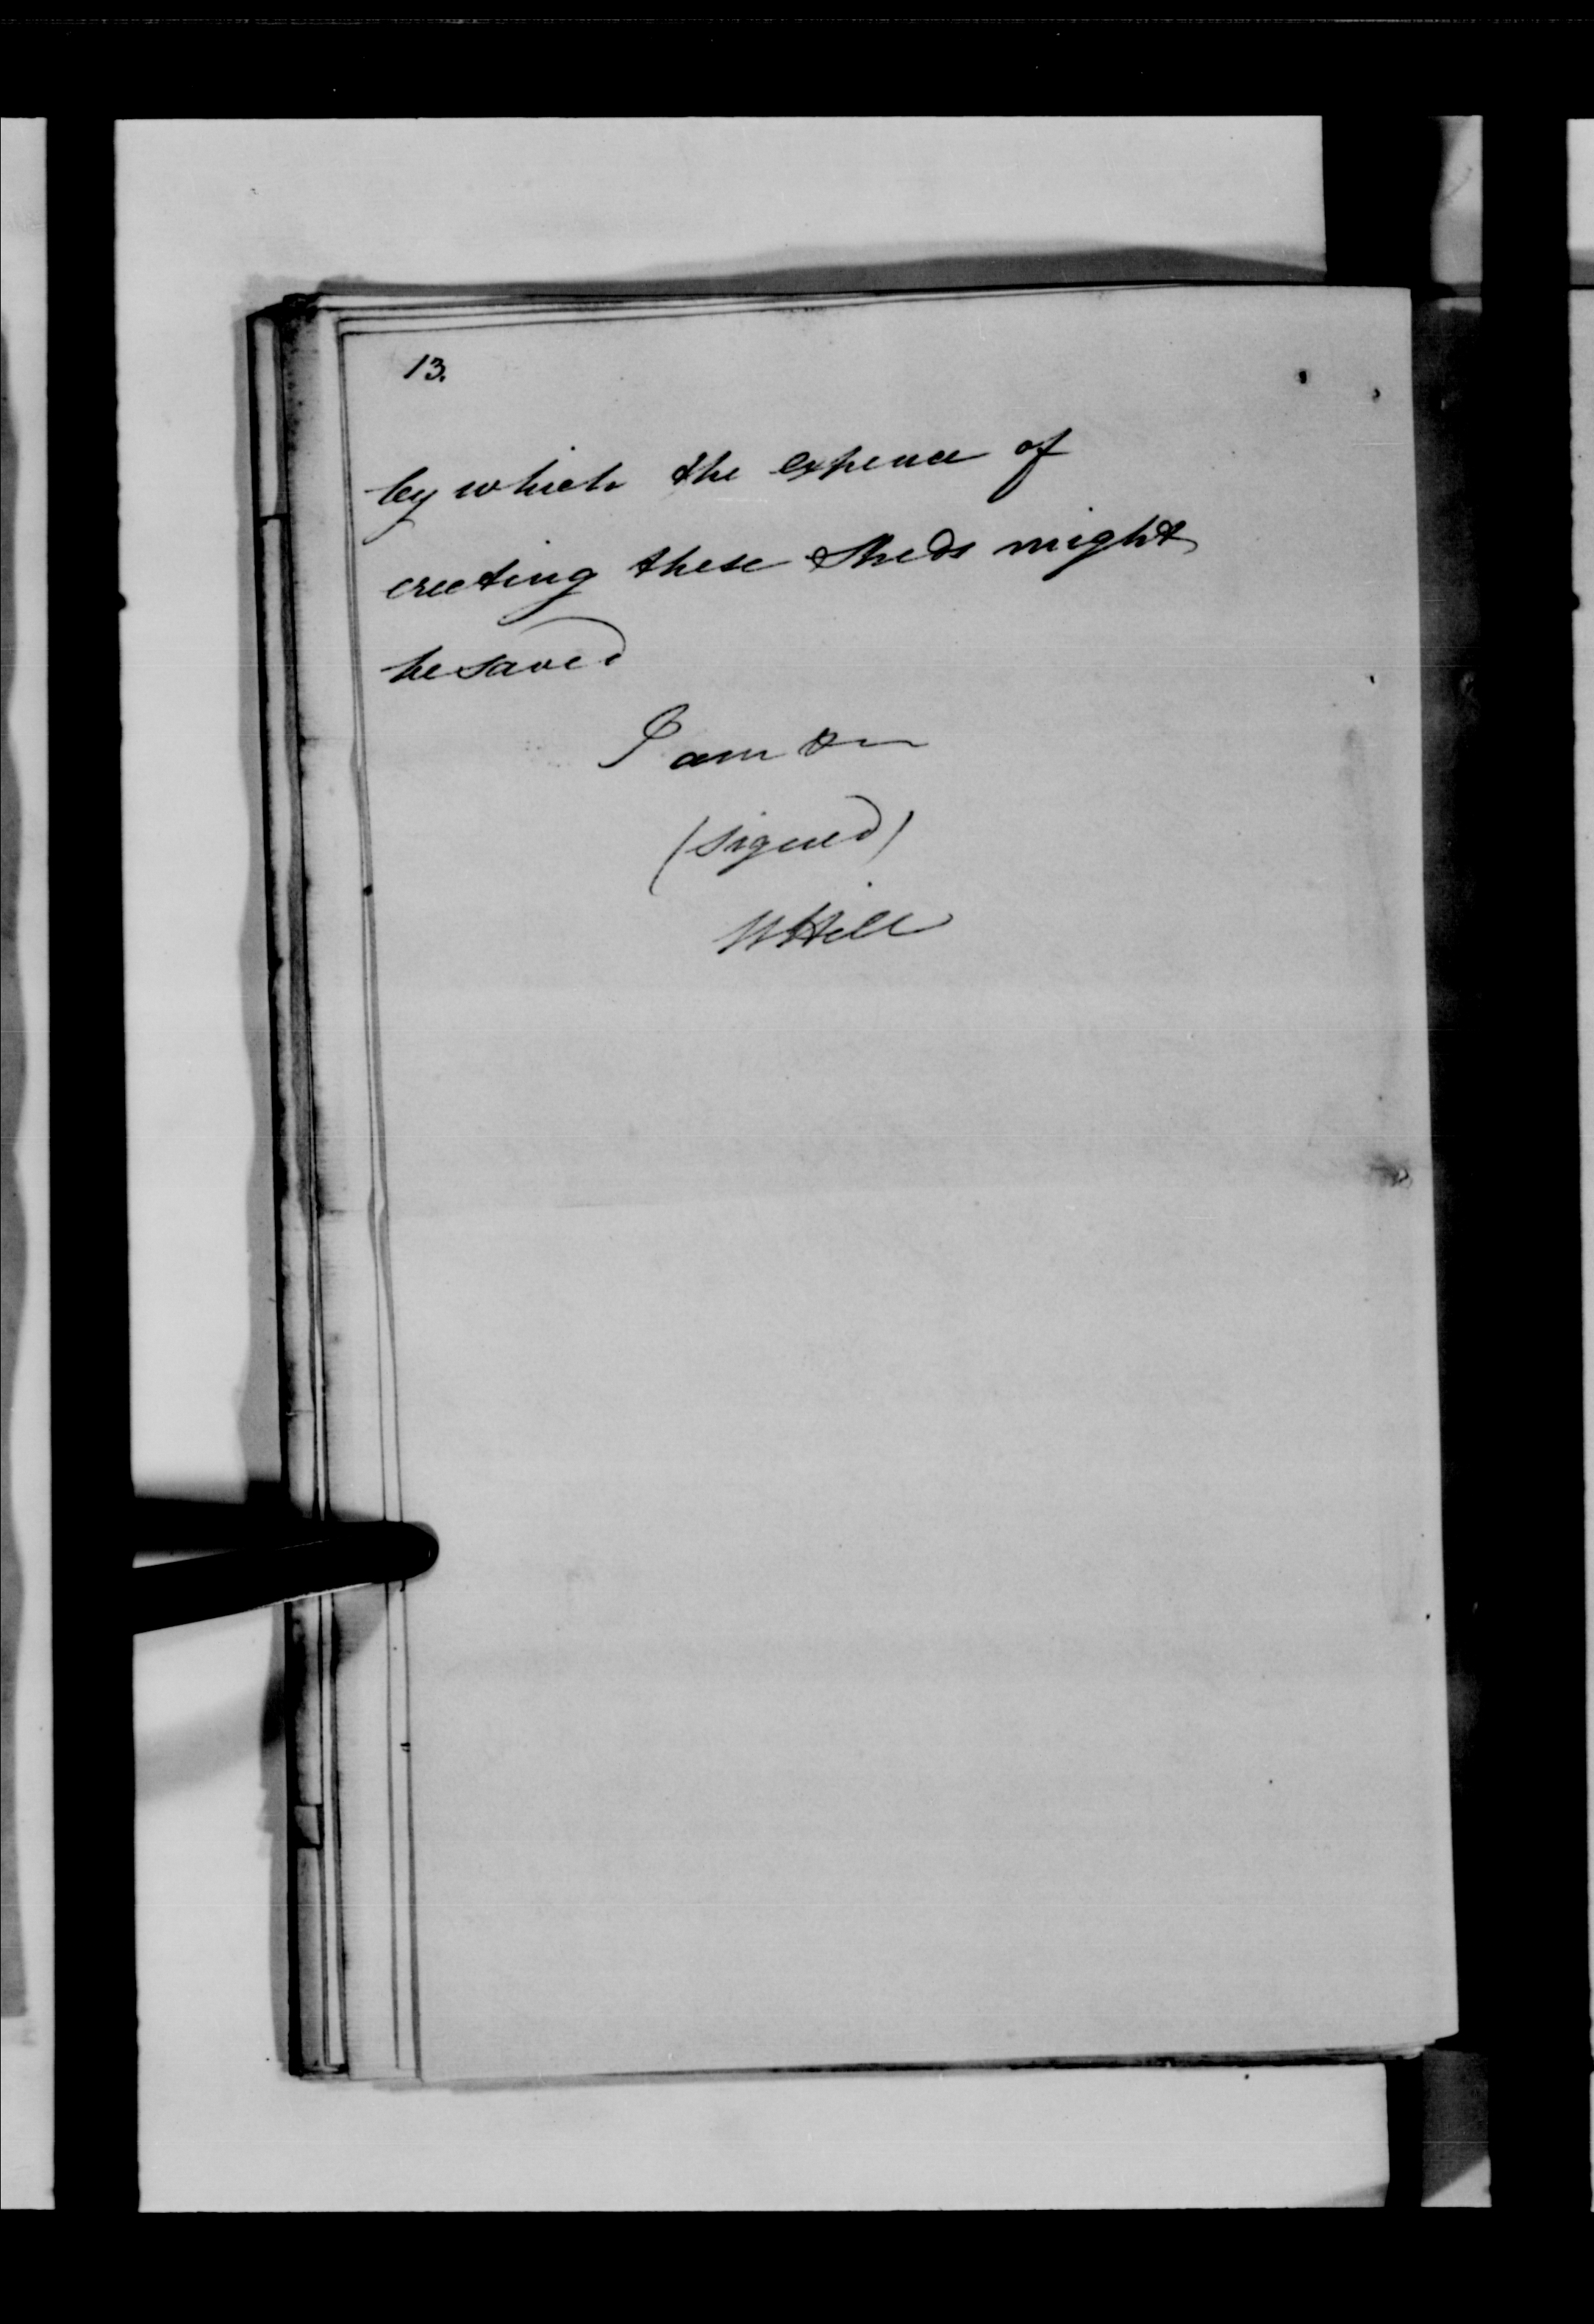 13.
by which the expence of
erecting these Sheds might
be saved
I am &c
(signed)
W Hill